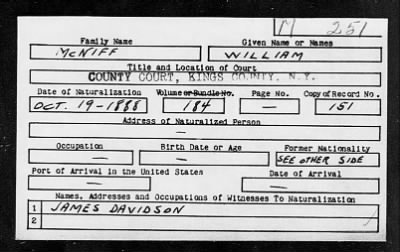 M 251
Family Name Given Name or Names
McNIFF WILLIAM
Title and Location of Court
COUNTY COURT, KINGS COUNTY, N.Y.
Date of Naturalization Volume or Bundle No. Page No. Copy of Record No.
OCT. 19-1888 184 — 151
Address of Naturalized Person
—
Occupation Birth Date or Age Former Nationality
— — SEE OTHER SIDE
Port of Arrival in the United States Date of Arrival
— —
Names, Addresses and Occupations of Witnesses To Naturalization
1 JAMES DAVIDSON
2